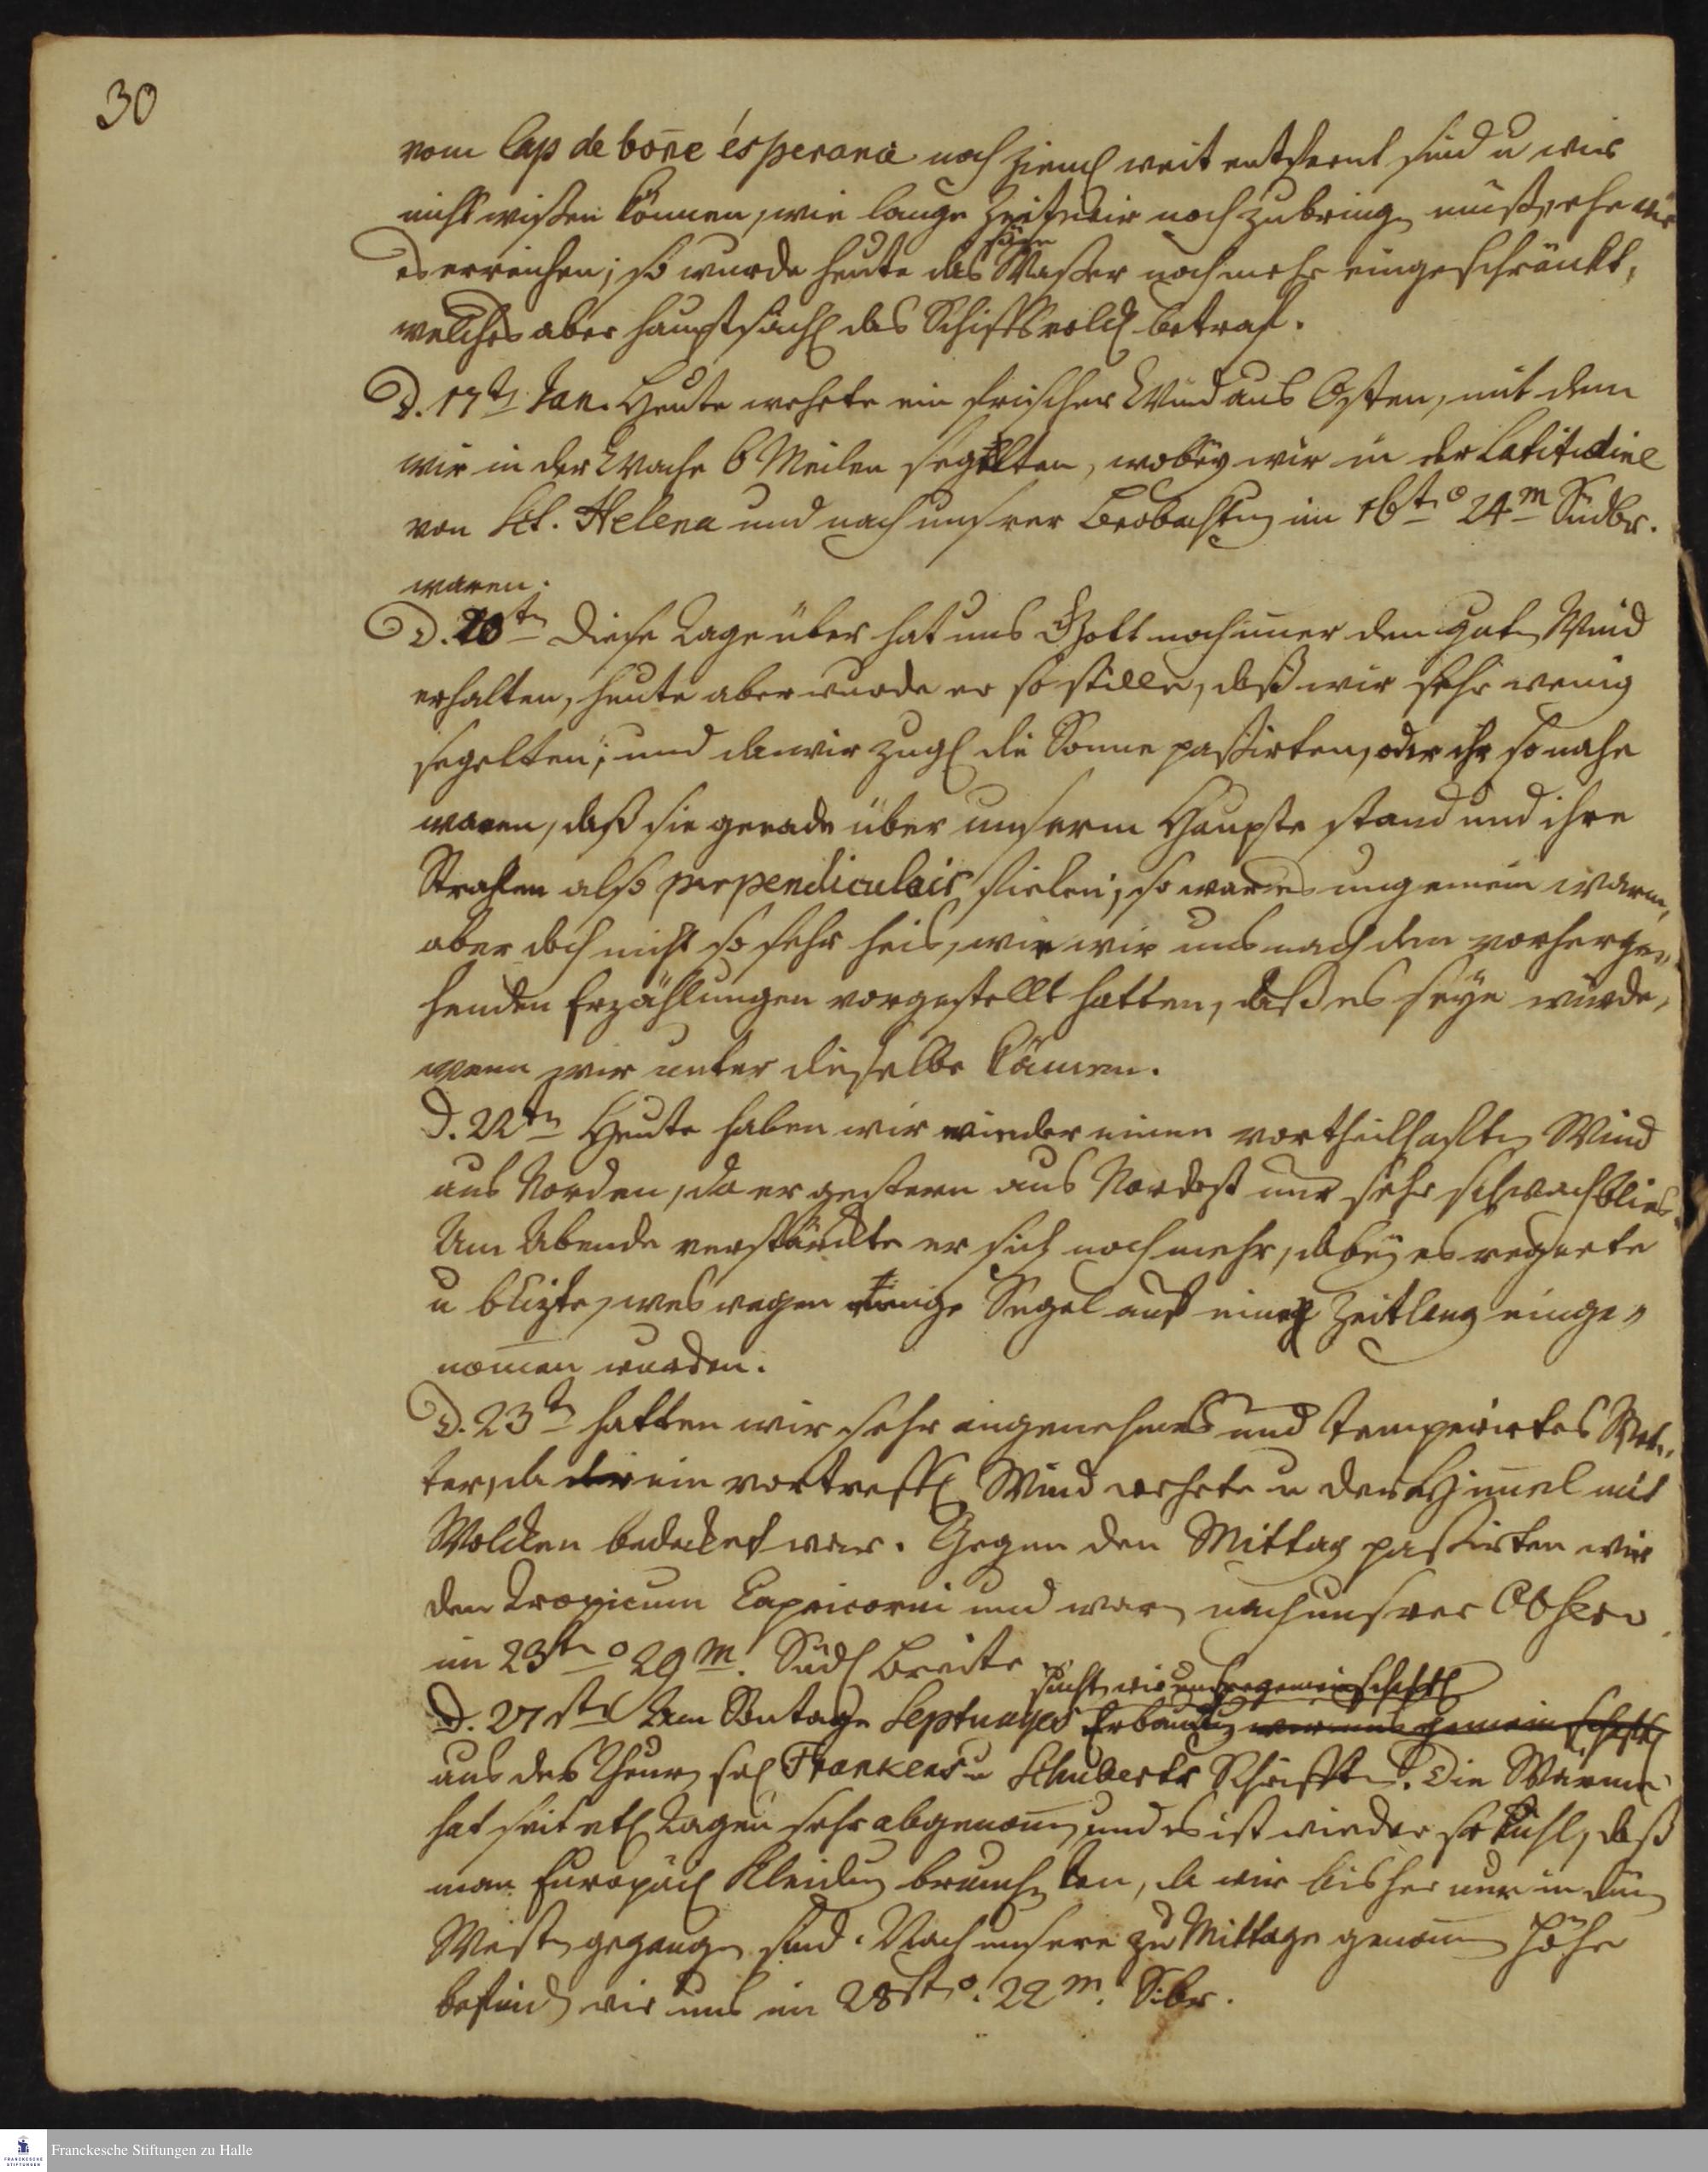 30
vom Cap de boñe ésperance noch zieml weit entfernt sind u wir
nicht wißen können, wie lange Zeit wir noch zubringen müßen, ehe wir
es erreichen; so wurde heute das süße Waßer noch mehr eingeschränkt,
welches aber hauptsächl das Schiffsvolck betraf.
D. 17t Jan. Heute wehete ein frischer Wind aus Osten, mit dem
wir in der Wache 6 Meilen segelten, wobey wir in der Latitudine
von St. Helena und nach unsrer Beobachtung im 16t° 24m Südbr.
waren.
D. 20tn Diese Tage über hat uns Gott noch im̄er den guten Wind
erhalten, heute aber wurde er so stille, daß wir sehr wenig
segelten; und da wir zugl die Sonne paßirten, oder ihr so nahe
waren, daß sie gerade über unserm Haupte stand und ihre
Strahlen also perpendiculair fielen; so war es ungemein warm,
aber doch nicht so sehr heis, wie wir uns nach den vorherge-
henden Erzählungen vorgestellt hatten, daß es seyn würde,
wenn wir unter dieselbe kämen.
D. 22tn Heute haben wir wieder einen vortheilhafften Wind
aus Norden, da er gestern aus Nordost nur sehr schwach blies.
Am Abende verstärckte er sich noch mehr, dabey es regnete
u blizte, weswegen einige Segel auf eine Zeitlang einge-
nom̄en wurden.
D. 23tn hatten wir sehr angenehmes und temperirtes Wet-
ter, da ein vortreffl Wind wehete u der Him̄el mit
Wolcken bedecket war. Gegen den Mittag paßirten wir
den Tropicum Capricorni und waren nach unsrer Observ.
im 23tn° 29m. Südl Breite
D. 27stn Am Sontage Septuages sucht wir unsre gemeinschaftl Erbauung wir uns gemeinschaftl
aus des Theuren sel Franckens u Schuberts Schrifften. Die Wärme
hat seit etl Tagen sehr abgenom̄en und es ist wieder so kühl, daß
man Europäis Kleidung brauchen kan, da wir bisher nur in dün
Westen gegangen sind. Nach unsere zu Mittage genom̄en Höhe
befinden wir uns im 28st°. 22m. S.br.
Franckesche Stiftungen zu Halle